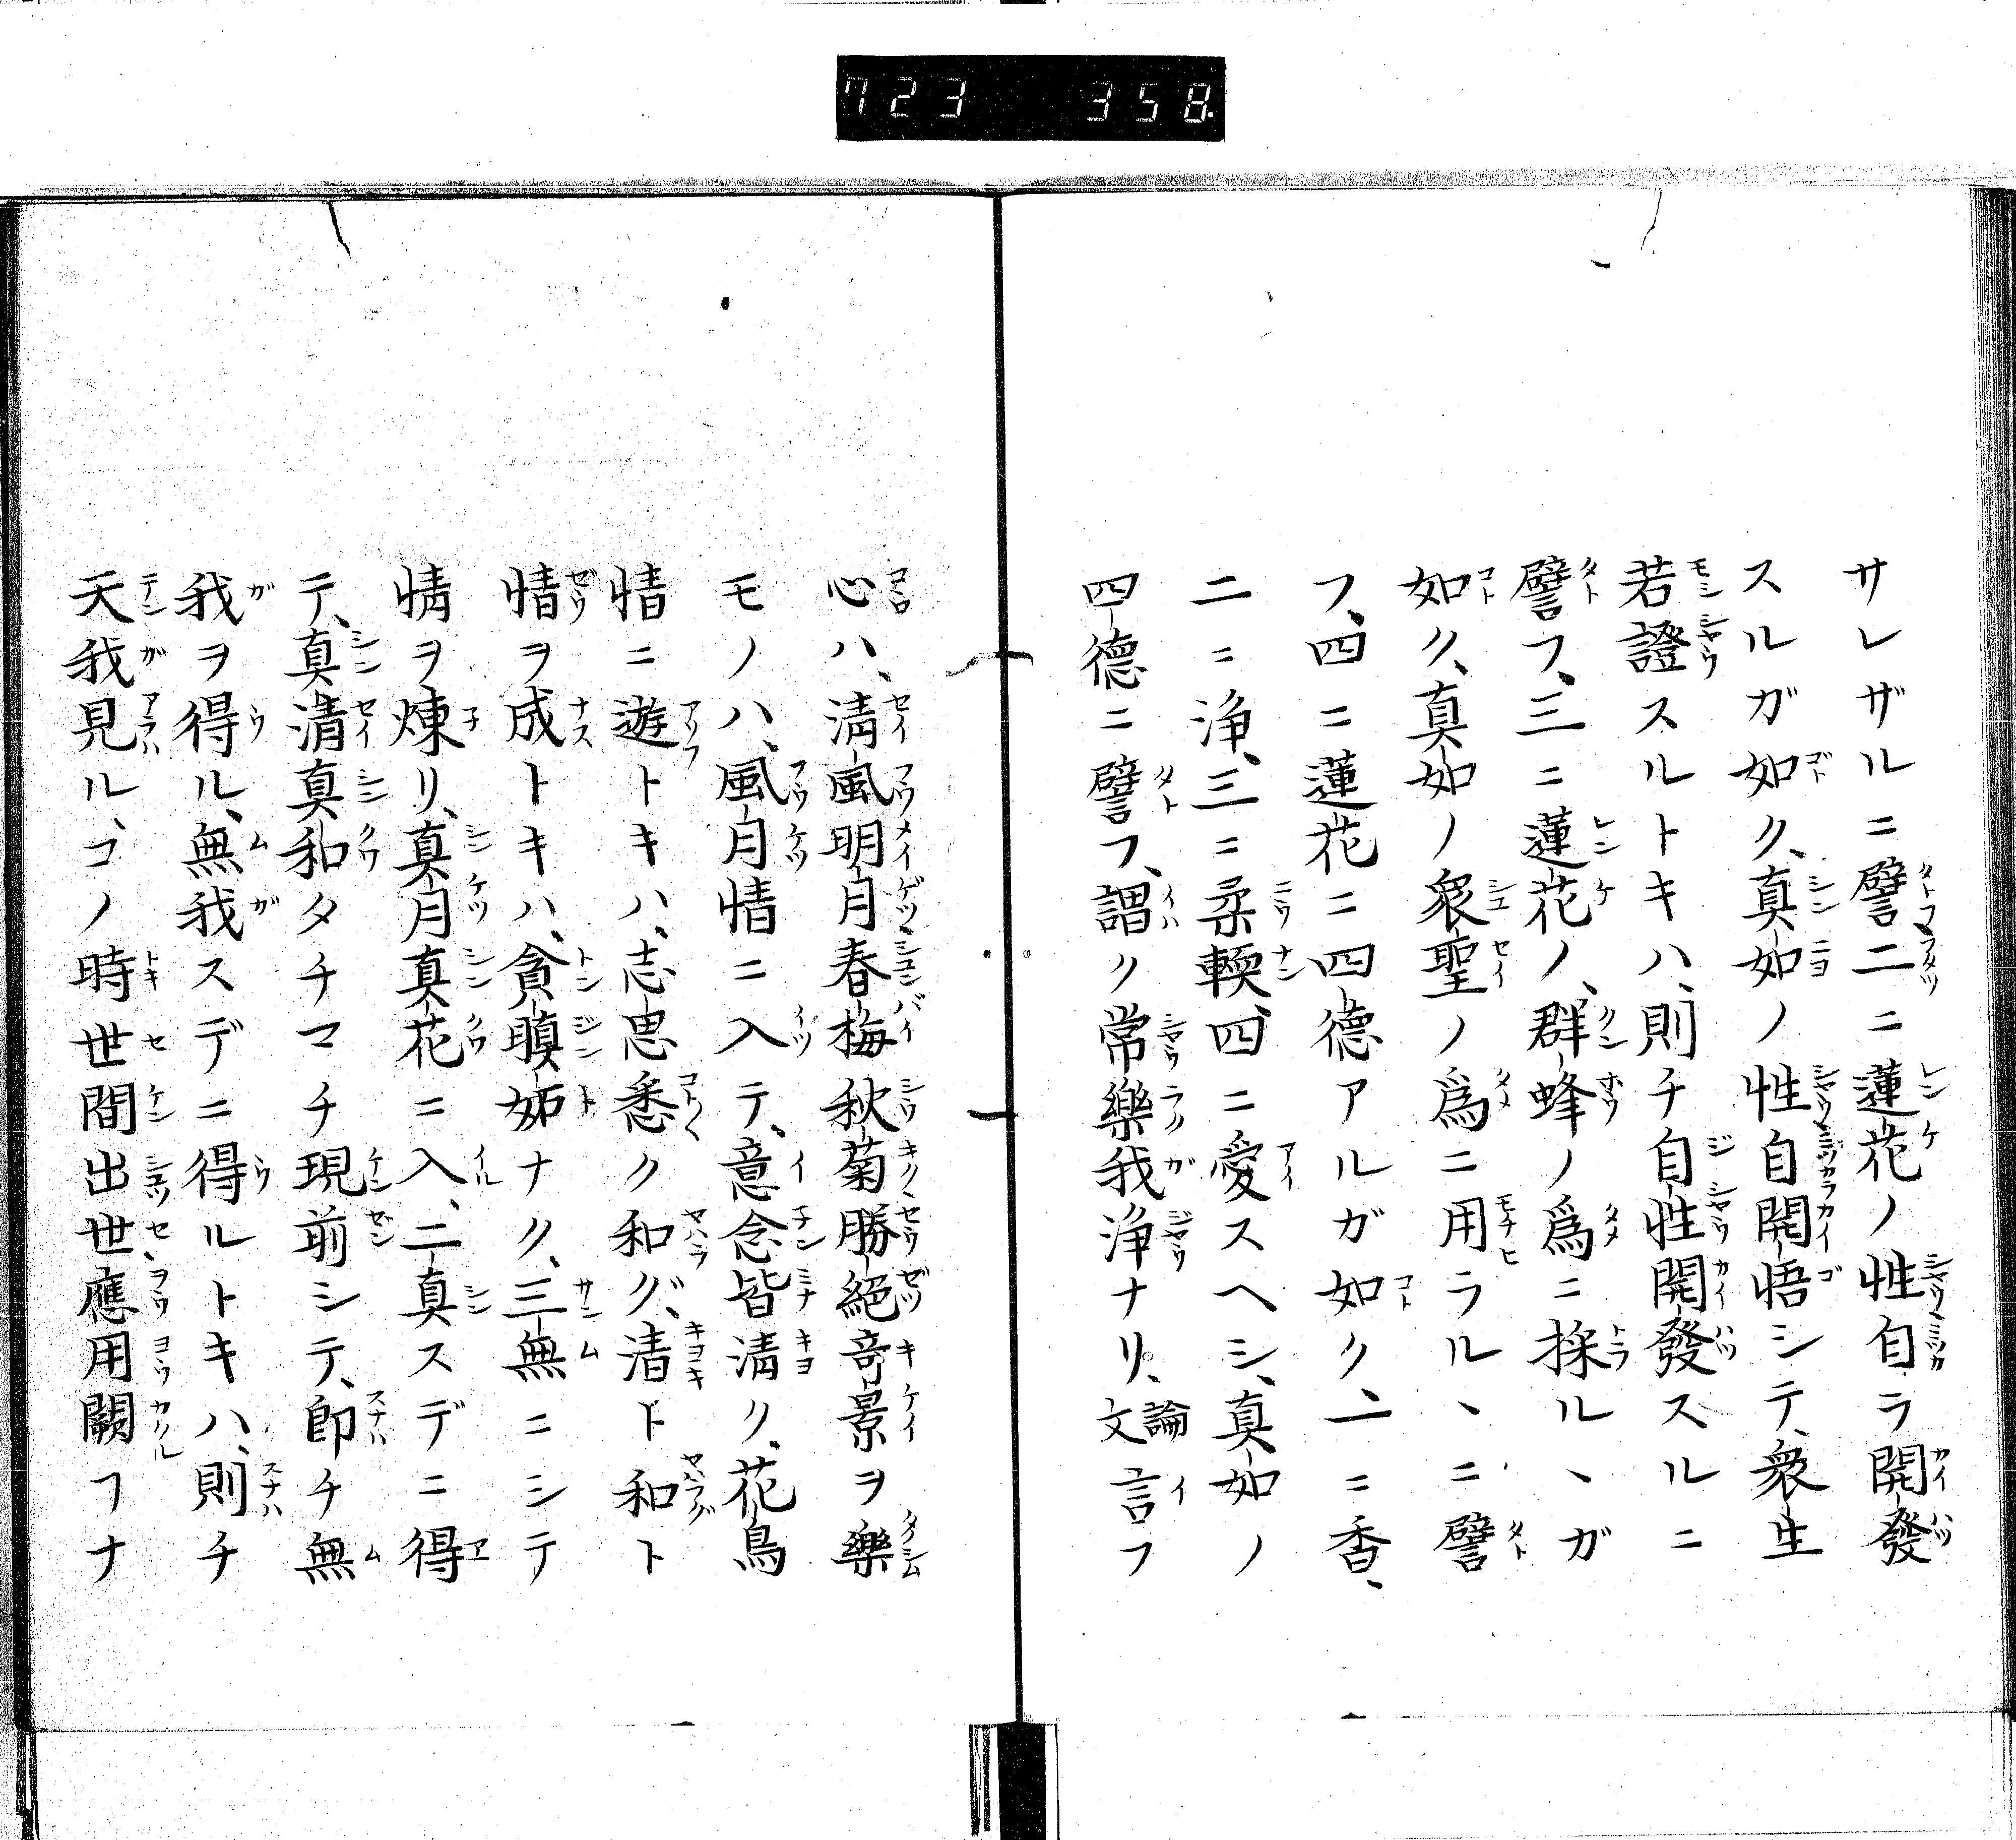 723 358
サレザルニ譬フ二ニ蓮花ノ性自ラ開發
スルガ如ク、真如ノ性自開悟シテ、衆生
若證スルトキハ、則チ自性開發スルニ
譬フ、三ニ蓮花ノ、群蜂ノ爲ニ採ル丶ガ
如ク、真如ノ衆聖ノ爲ニ用ラル丶ニ譬
フ、四ニ蓮花ニ四德アルガ如ク、一ニ香、
二ニ浄、三ニ柔輭、四ニ愛スヘシ、真如ノ
四德ニ譬フ、謂ク常樂我浄ナリ、論文言フ
心ハ、清風明月春梅秋菊勝絕竒景ヲ樂
モノハ、風月情ニ入テ、意念皆清ク、花鳥
情ニ遊トキハ、志思悉ク和グ、清ト和ト
情ヲ成トキハ、貪瞋妬ナク、三無ニシテ
情ヲ煉リ、真月真花ニ入、二真スデニ得
テ、真清真和タチマチ現前シテ、即チ無
我ヲ得ル、無我スデニ得ルトキハ、則チ
天我見ル、コノ時世間出世應用闕フナ